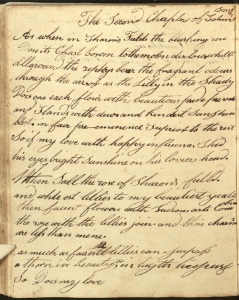 Song
The Second Chapter of Solom
As when in Sharon's Fields the blushing rose
Does its Chast bosom to the morn disclose whilst
All around the zephyrs bear the fragrant odours
through the air or as the Lilly in the Shady
flowers each flower with beauteous pride
and Stands with dews and kindest Sunshine
blest in fair pre-eminence Superior to the rest
So if my love with happy influence Shed
his eyes bright Sunshine on his lovers head
then Shall the rose of Sharon's fields
and white lillies to my beauties yield
then fairest flowers with
the rose with the lillies join and their charms
are less than mine
as much as fairest lillies can surpass
a thorn in beauty or in height the grass
So Does my love